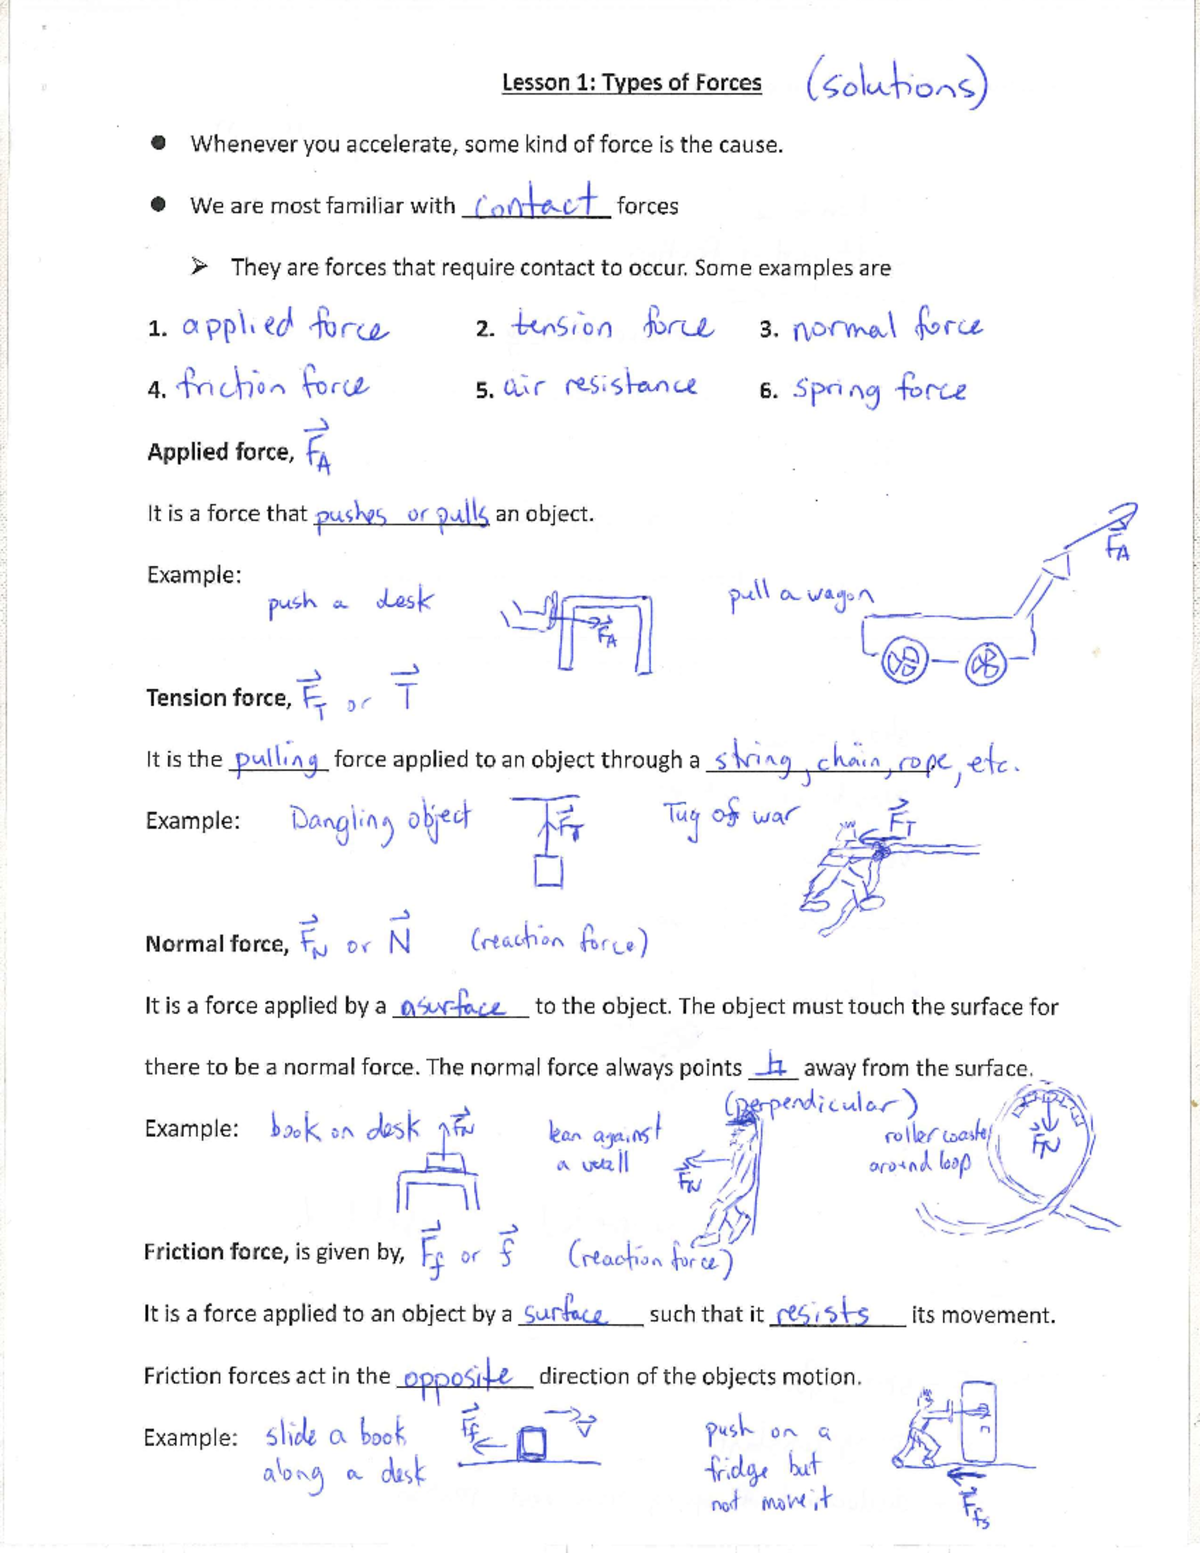 Lesson 1: Types of Forces (solutions)
● Whenever you accelerate, some kind of force is the cause.
● We are most familiar with contact forces
➢ They are forces that require contact to occur. Some examples are
1. applied force 2. tension force 3. normal force
4. friction force 5. air resistance 6. spring force
Applied force, F⃗A
It is a force that pushes or pulls an object.
Example: push a desk F⃗A pull a wagon F⃗A
Tension force, F⃗T or T⃗
It is the pulling force applied to an object through a string, chain, rope, etc.
Example: Dangling object F⃗T Tug of war F⃗T
Normal force, F⃗N or N⃗ (reaction force)
It is a force applied by a asurface to the object. The object must touch the surface for
there to be a normal force. The normal force always points away from the surface.
(perpendicular)
Example: book on desk F⃗N lean against a wall F⃗N roller coaster around loop F⃗N
Friction force, is given by, F⃗f or f⃗ (reaction force)
It is a force applied to an object by a surface such that it resists its movement.
Friction forces act in the opposite direction of the objects motion.
Example: slide a book along a desk F⃗f v⃗ push on a fridge but not move it F⃗fs